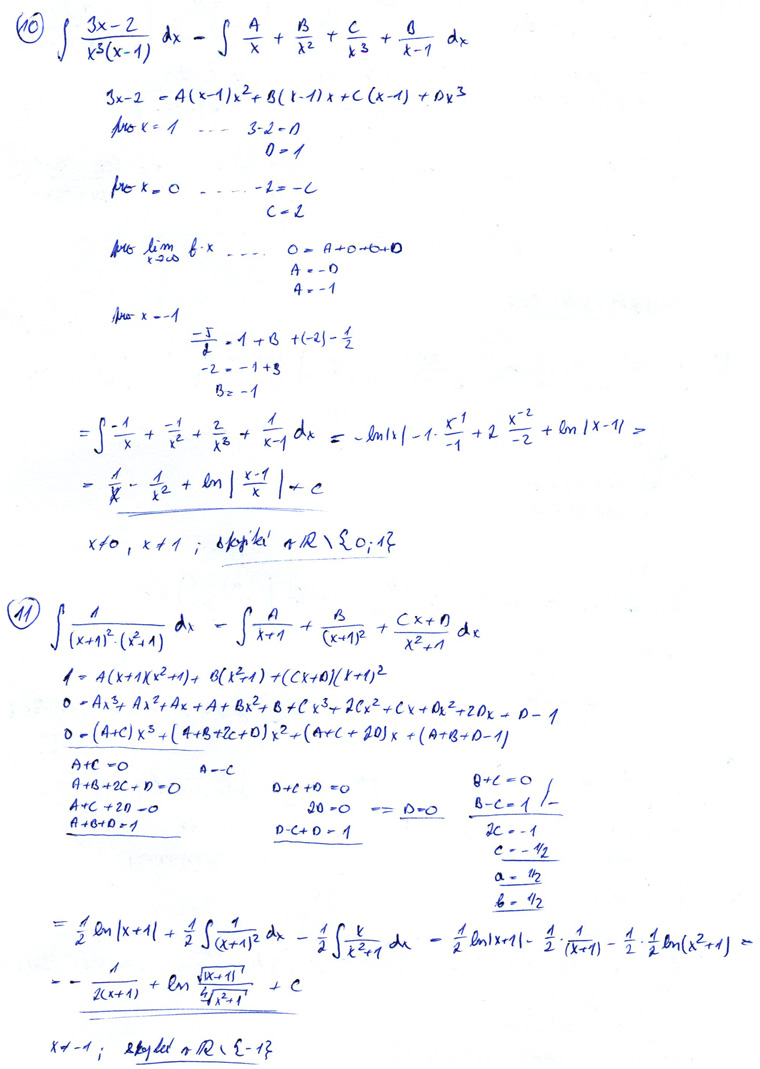 10) ∫ (3x-2)/(x³(x-1)) dx = ∫ A/x + B/x² + C/x³ + B/(x-1) dx
3x-2 = A(x-1)x² + B(x-1)x + C(x-1) + Dx³
pro x = 1 .... 3-2 = D
D = 1
pro x = 0 ..... -2 = -C
C = 2
pro lim x→∞ f·x .... 0 = A+0+0+D
A = -D
A = -1
pro x = -1
-5/2 = 1 + B + (-2) - 1/2
-2 = -1 + B
B = -1
= ∫ -1/x + -1/x² + 2/x³ + 1/(x-1) dx = -ln|x| - 1· x⁻¹/-1 + 2 x⁻²/-2 + ln|x-1| =
= 1/x - 1/x² + ln |(x-1)/x| + C
x≠0, x≠1 ; spojité v ℝ \ {0;1}
11) ∫ 1/((x+1)²·(x²+1)) dx = ∫ A/(x+1) + B/(x+1)² + (Cx+D)/(x²+1) dx
1 = A(x+1)(x²+1) + B(x²+1) + (Cx+D)(x+1)²
0 = Ax³ + Ax² + Ax + A + Bx² + B + Cx³ + 2Cx² + Cx + Dx² + 2Dx + D - 1
0 = (A+C)x³ + (A+B+2C+D)x² + (A+C+2D)x + (A+B+D-1)
A+C = 0 A = -C
A+B+2C+D = 0
A+C+2D = 0
A+B+D = 1
B+C+D = 0
2D = 0 => D = 0
B-C+D = 1
B+C = 0
B-C = 1 /-
2C = -1
C = -1/2
a = 1/2
b = 1/2
= 1/2 ln|x+1| + 1/2 ∫ 1/(x+1)² dx - 1/2 ∫ x/(x²+1) dx = 1/2 ln|x+1| - 1/2 · 1/(x+1) - 1/2 · 1/2 ln(x²+1) =
= - 1/(2(x+1)) + ln √|x+1| / ⁴√(x²+1) + C
x ≠ -1 ; spojité v ℝ \ {-1}